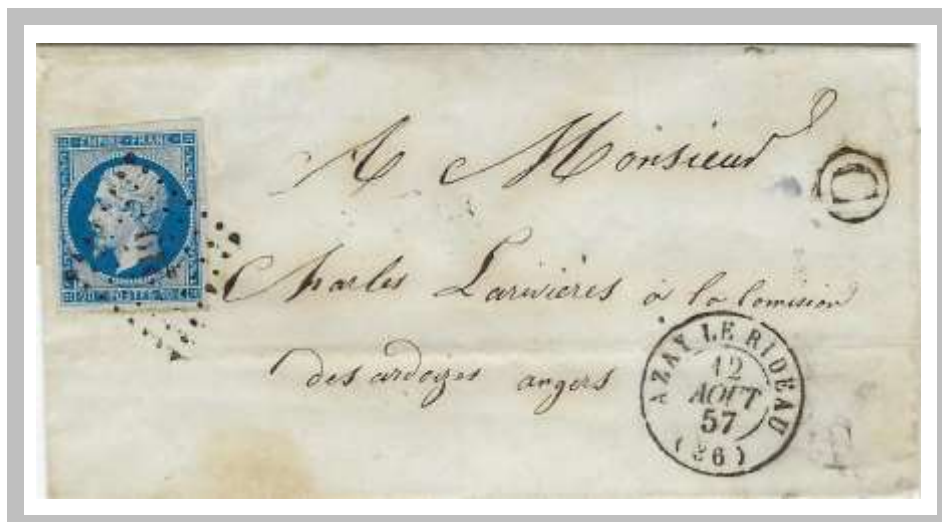 EMPIRE FRANC
20 c POSTES 20 c
A Monsieur
D
Charles Larivières à la Comision
des ardoizes angers
AZAY LE RIDEAU
12
AOUT
57
(36)